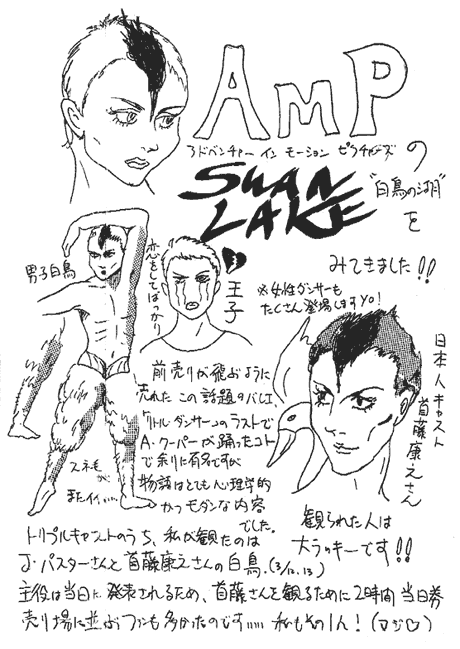 AMP
アドベンチャー イン モーション ピクチャーズ の
SWAN
LAKE
"白鳥の湖"
を
みてきました!!
男子白鳥
恋をしてばっかり
王子
※女性ダンサーも
たくさん登場しますYO!
日本人キャスト
首藤康えさん
前売りが飛ぶように
売れた この話題のバレエ、
リトルダンサーのラストで
A.クーパーが踊ったコト
で余りに有名ですが
物語はとても心理学的
かつモダンな内容
でした。
スネ毛
が
またイイ、、、
観られた人は
大ラッキーです!!
トリプルキャストのうち、私が観たのは
J・パスターさんと首藤康えさんの白鳥。(3/12.13)
主役は当日に発表されるため、首藤さんを観るために2時間 当日券
売り場に並ぶファンも多かったのです、、、、、 私もその1人!(マジ